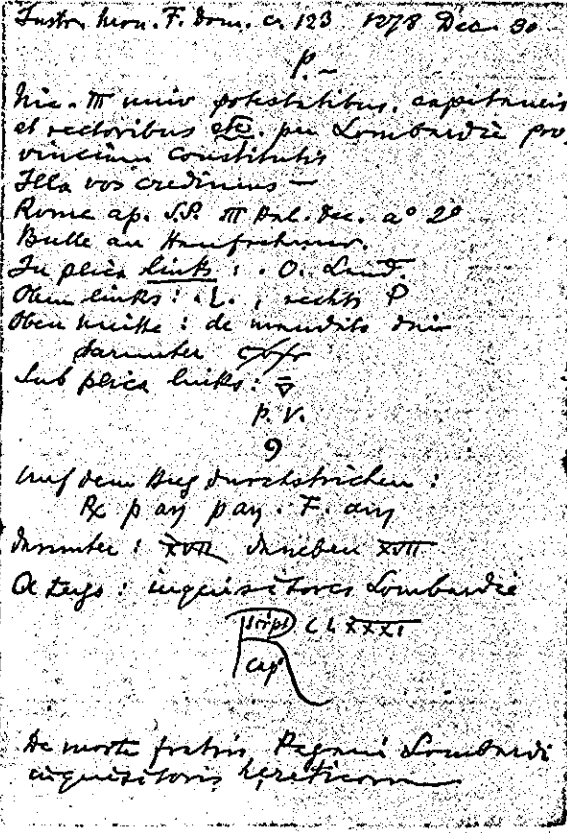 Instr. Mon. F. Dom. c. 123 1278 Dec. 30
P. –
Nic. III univ potestatibus, capitaneis
et rectoribus etc. per Lombardie pro
vinciam constitutis
Illa vos credimus –
Rome ap. S.P. III Kal. Dec. a° 2°
Bulle an Hanfschnur.
In plica links : . O. Laud.
Oben links : . L. , rechts P
Oben mitte : de mandato dni
darunter
Sub plica links :
p. V.
9
Auf dem Bug durchstrichen :
Rx p an pan . F. an
darunter : XVII daneben XVII
A tergo : inquisitores Lombardie
R script CLXXXI
cap
De morte fratris Pagani Lombardi
inquisitoris hereticorum